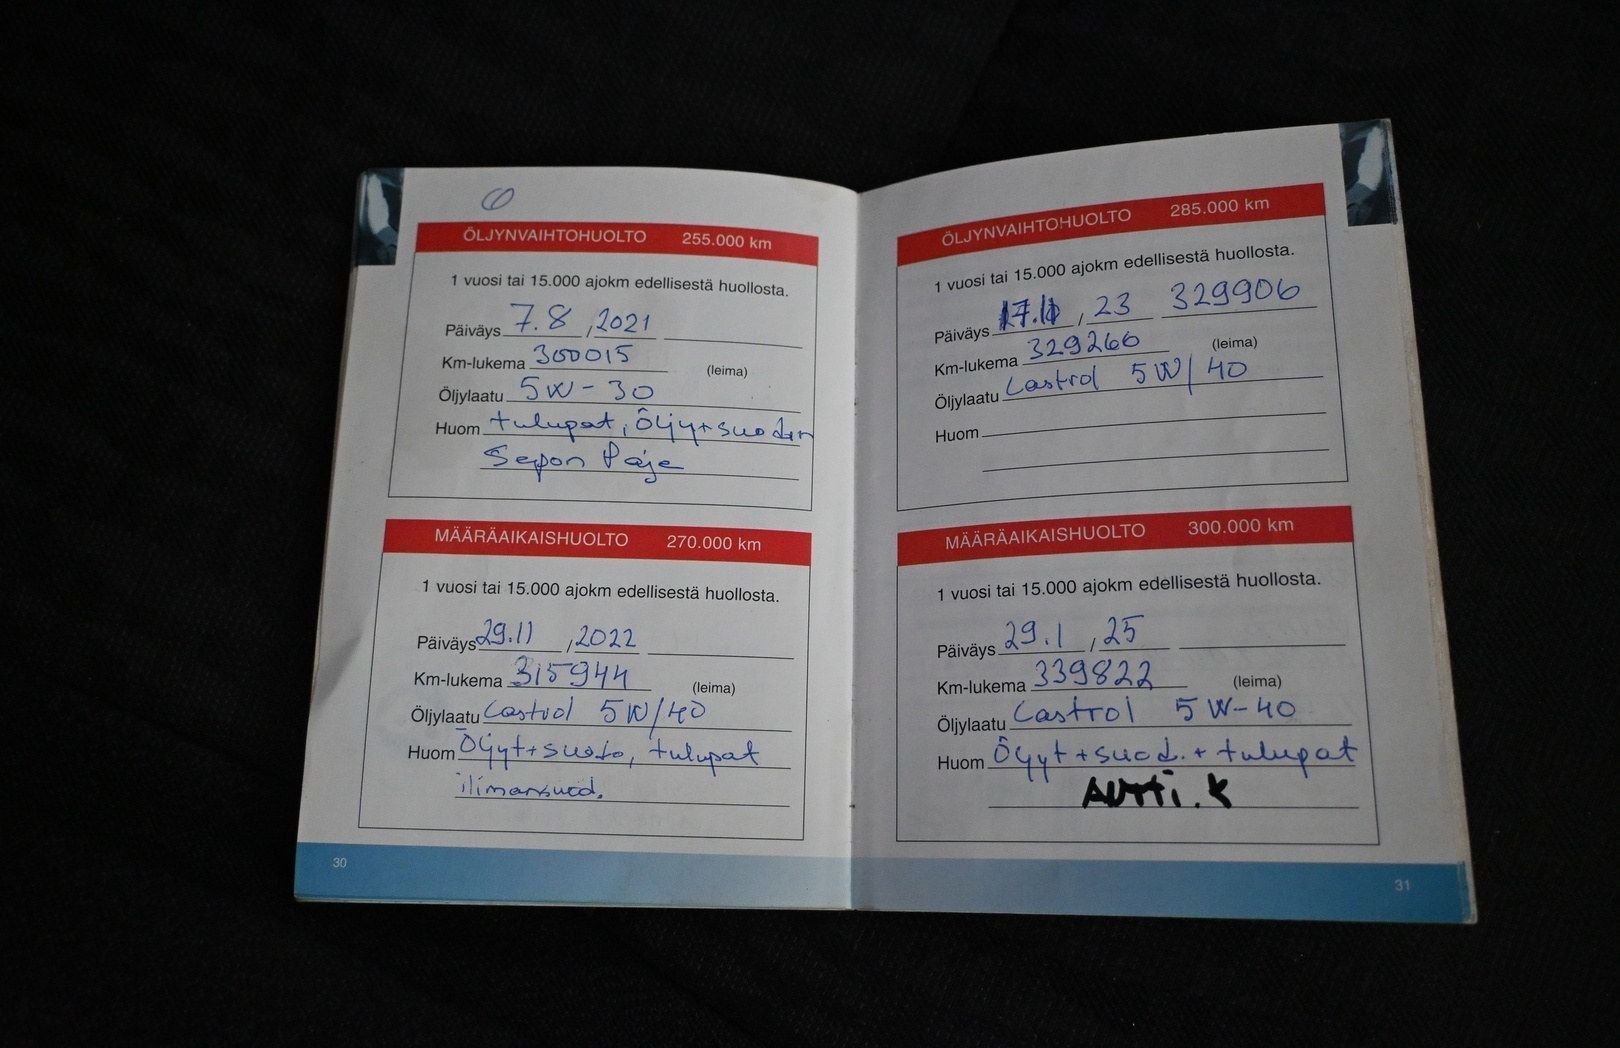 ÖLJYNVAIHTOHUOLTO 255.000 km
1 vuosi tai 15.000 ajokm edellisestä huollosta.
Päiväys 7.8 , 2021
Km-lukema 300015 (leima)
Öljylaatu 5W-30
Huom tulupat, Öljy+suodin
Sepon Paja
MÄÄRÄAIKAISHUOLTO 270.000 km
1 vuosi tai 15.000 ajokm edellisestä huollosta.
Päiväys 29.11 , 2022
Km-lukema 315944 (leima)
Öljylaatu Castrol 5W/40
Huom Öljyt+suodo, tulupat
ilimansuod.
30
ÖLJYNVAIHTOHUOLTO 285.000 km
1 vuosi tai 15.000 ajokm edellisestä huollosta.
Päiväys , 23 329906
Km-lukema 329266 (leima)
Öljylaatu Castrol 5W/40
Huom
MÄÄRÄAIKAISHUOLTO 300.000 km
1 vuosi tai 15.000 ajokm edellisestä huollosta.
Päiväys 29.1 , 25
Km-lukema 339822 (leima)
Öljylaatu Castrol 5W-40
Huom Öljyt+suod.+tulupat
Antti.K
31